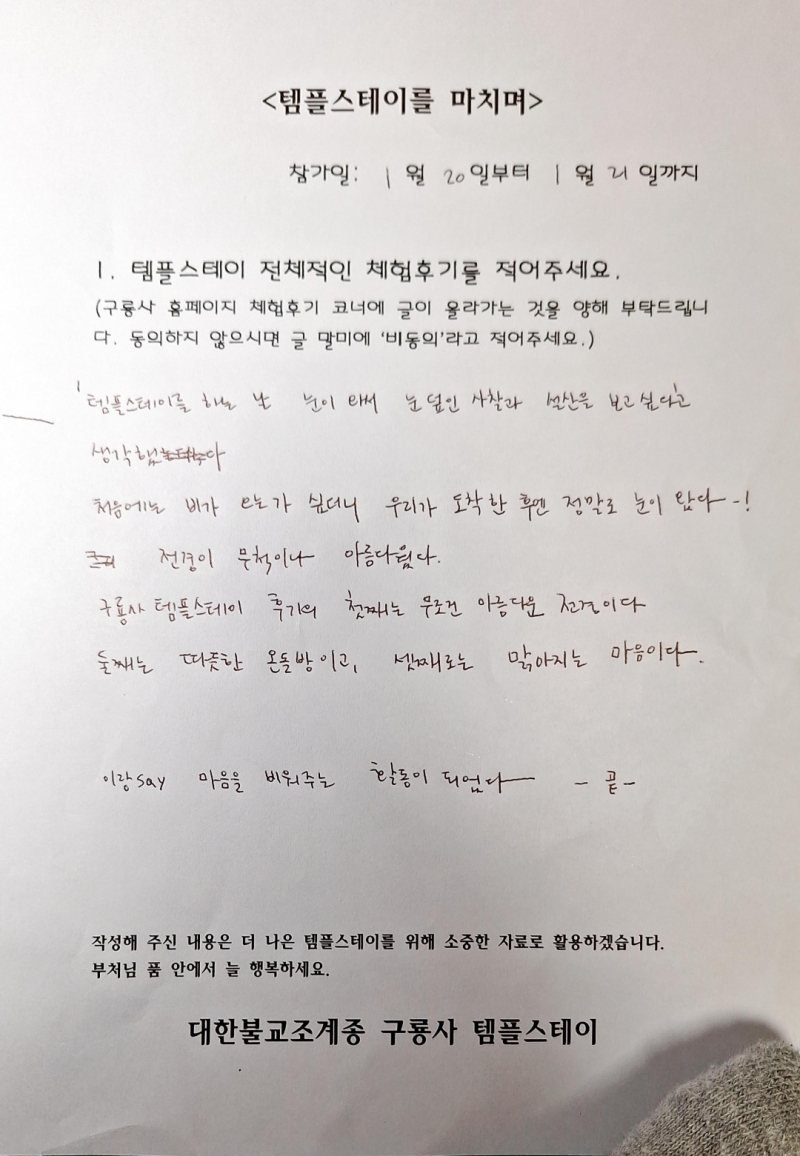 <템플스테이를 마치며>
참가일: 1 월 20 일부터 1 월 21 일까지
1. 템플스테이 전체적인 체험후기를 적어주세요.
(구룡사 홈페이지 체험후기 코너에 글이 올라가는 것을 양해 부탁드립니
다. 동의하지 않으시면 글 말미에 '비동의'라고 적어주세요.)
'템플스테이를 하는 날 눈이 와서 눈 덮인 사찰과 설산을 보고싶다'고
생각했다
처음에는 비가 오는가 싶더니 우리가 도착한 후엔 정말로 눈이 왔다-!
전경이 무척이나 아름다웠다.
구룡사 템플스테이 후기의 첫째는 무조건 아름다운 전경이다
둘째는 따뜻한 온돌방이고, 셋째로는 맑아지는 마음이다.
이랑say 마음을 비워주는 활동이 되었다 - 끝 -
작성해 주신 내용은 더 나은 템플스테이를 위해 소중한 자료로 활용하겠습니다.
부처님 품 안에서 늘 행복하세요.
대한불교조계종 구룡사 템플스테이